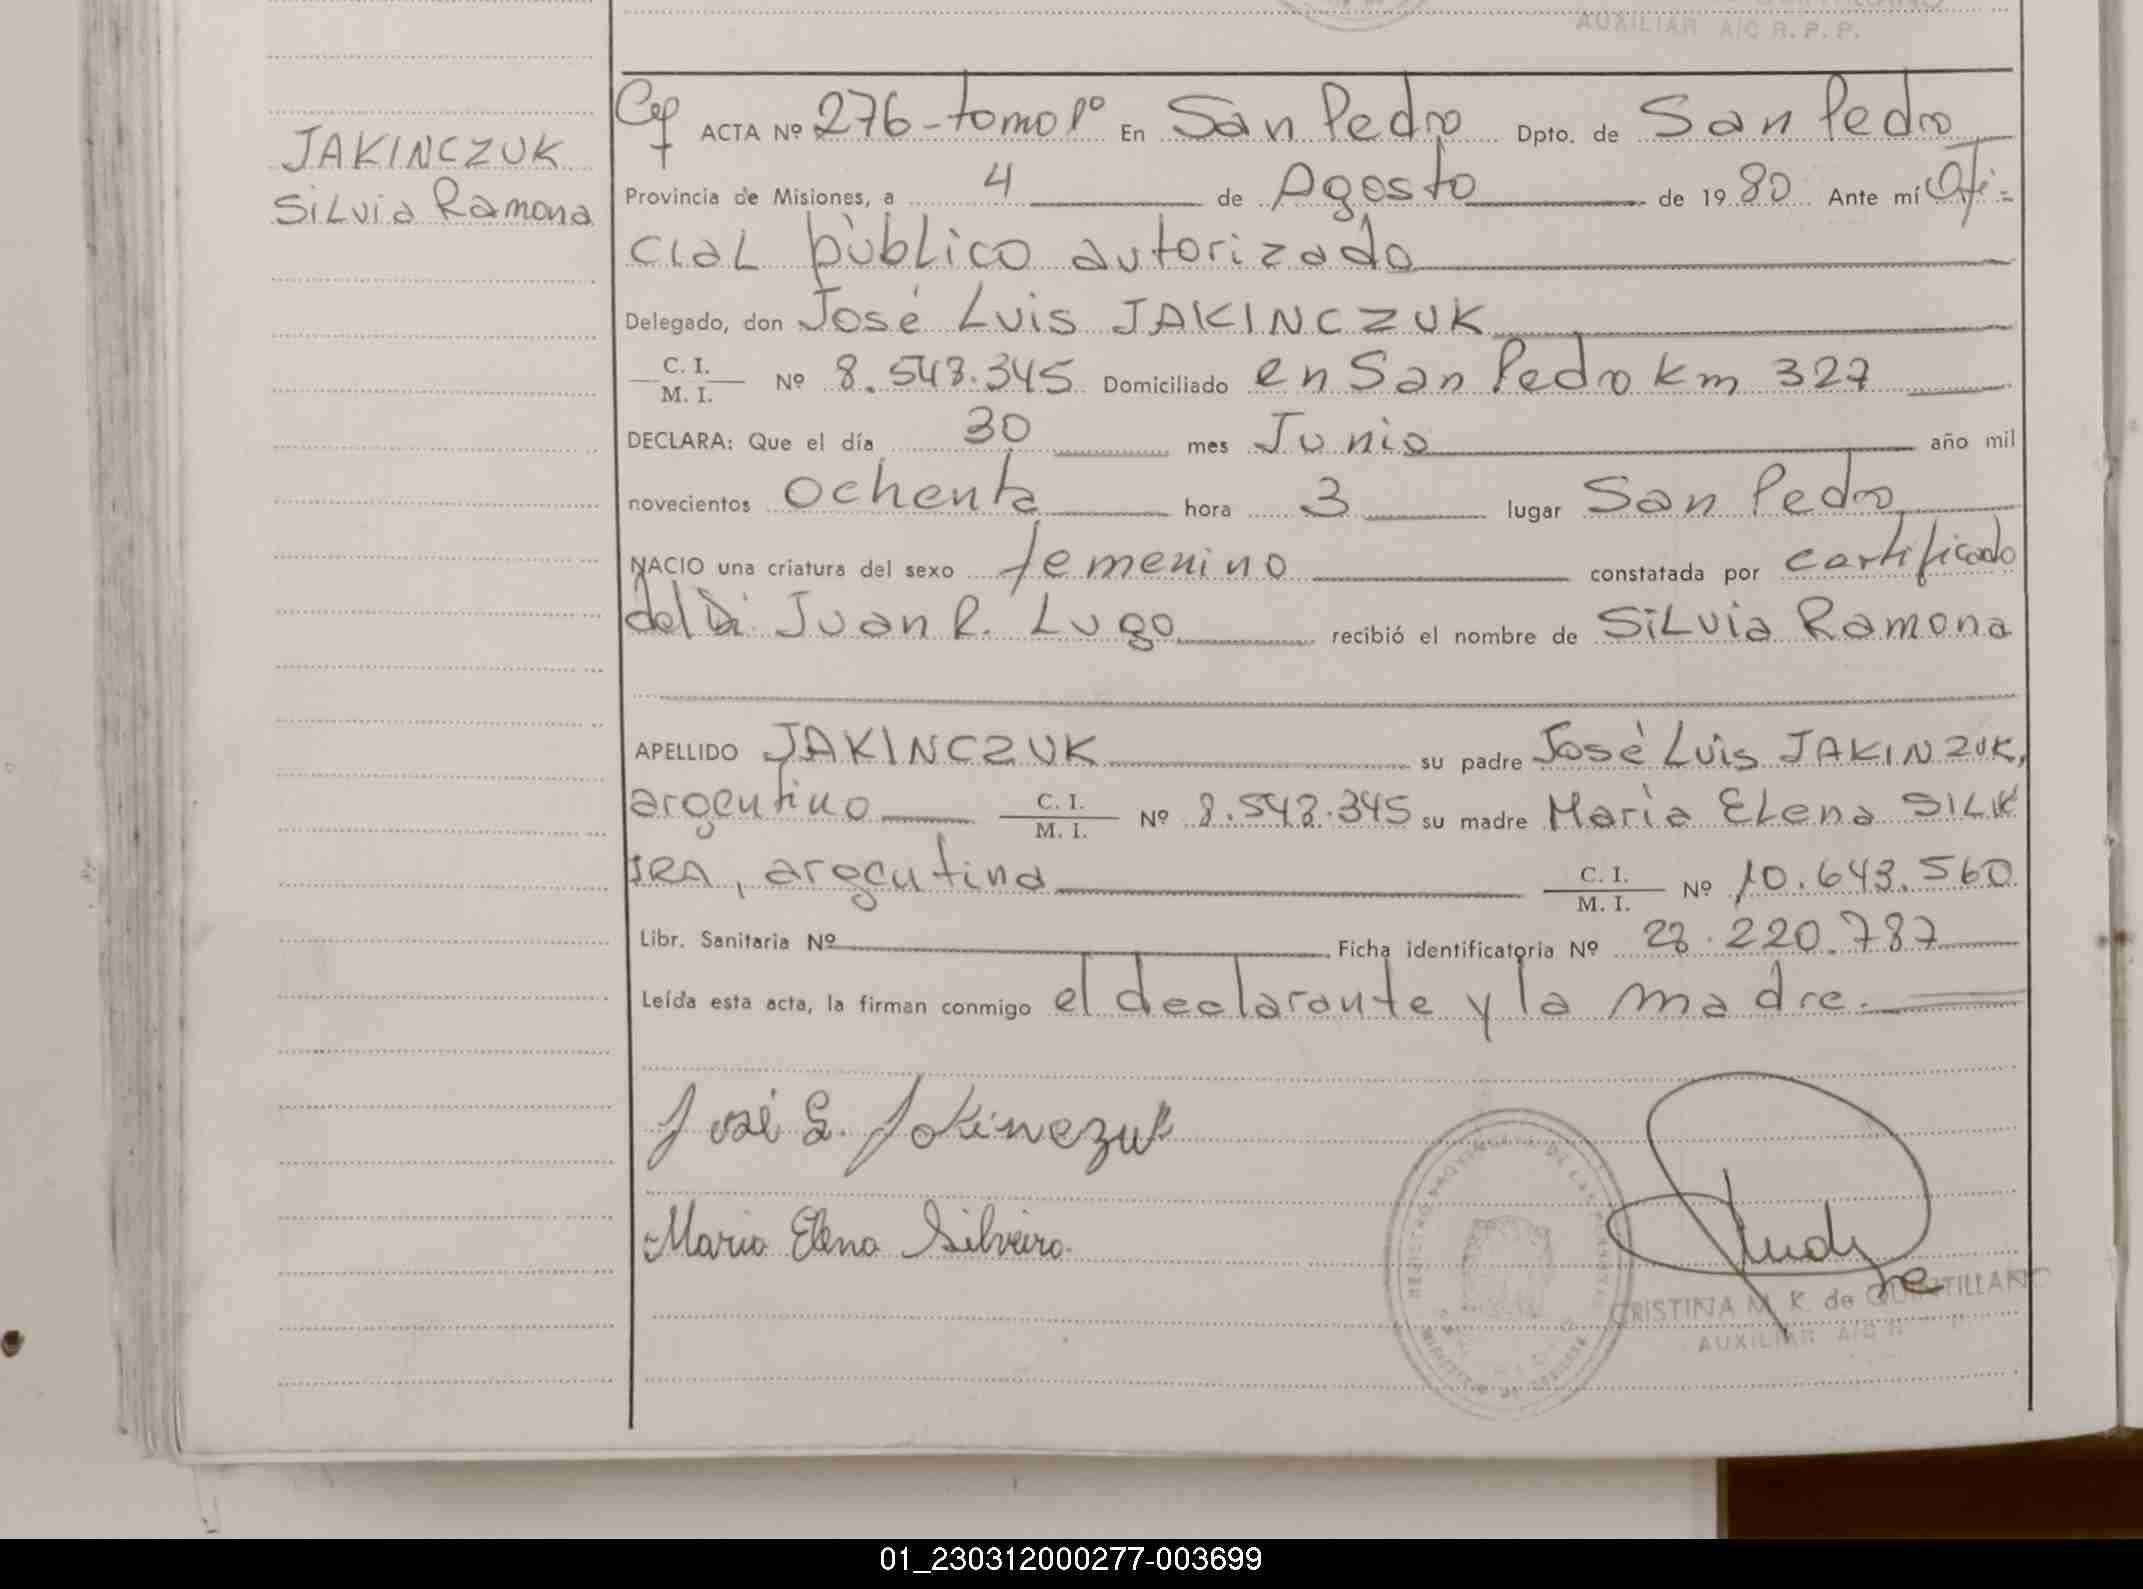 AUXILIAR A/C R. P. P.
JAKINCZUK
SiLvia Ramona
ACTA Nº 276-tomo 1º En San Pedro Dpto. de San Pedro
Provincia de Misiones, a 4 de Agosto de 1980 Ante mí Ofi-
cial público autorizado
Delegado, don José Luis JAKINCZUK
C. I.
M. I. Nº 8.548.345 Domiciliado en San Pedro Km 327
DECLARA: Que el día 30 mes Junio año mil
novecientos ochenta hora 3 lugar San Pedro
NACIO una criatura del sexo femenino constatada por certificado
del Dr. Juan R. Lugo recibió el nombre de SiLvia Ramona
APELLIDO JAKINCZUK su padre José Luis JAKINZUK,
argentino C. I.
M. I. Nº 8.548.345 su madre Maria Elena SILV
IRA, argentina C. I.
M. I. Nº 10.643.560
Libr. Sanitaria Nº Ficha identificatoria Nº 28.220.787
Leída esta acta, la firman conmigo el declarante y la madre.
José L. Jakinczuk
Maria Elena Silveira
CRISTINA M. K. de QUINTILLANO
AUXILIAR A/C R
01_230312000277-003699